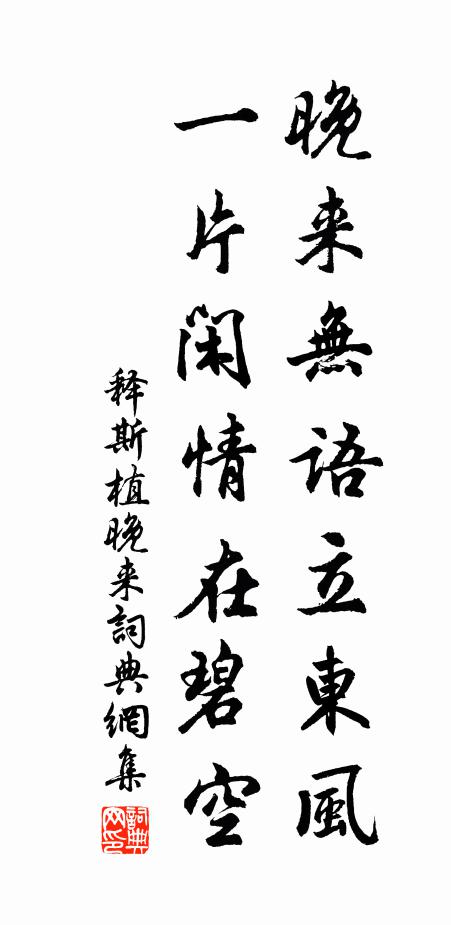 晚来無語立東風
一片閑情在碧空
释斯植晚来詞典網集
詞典网印